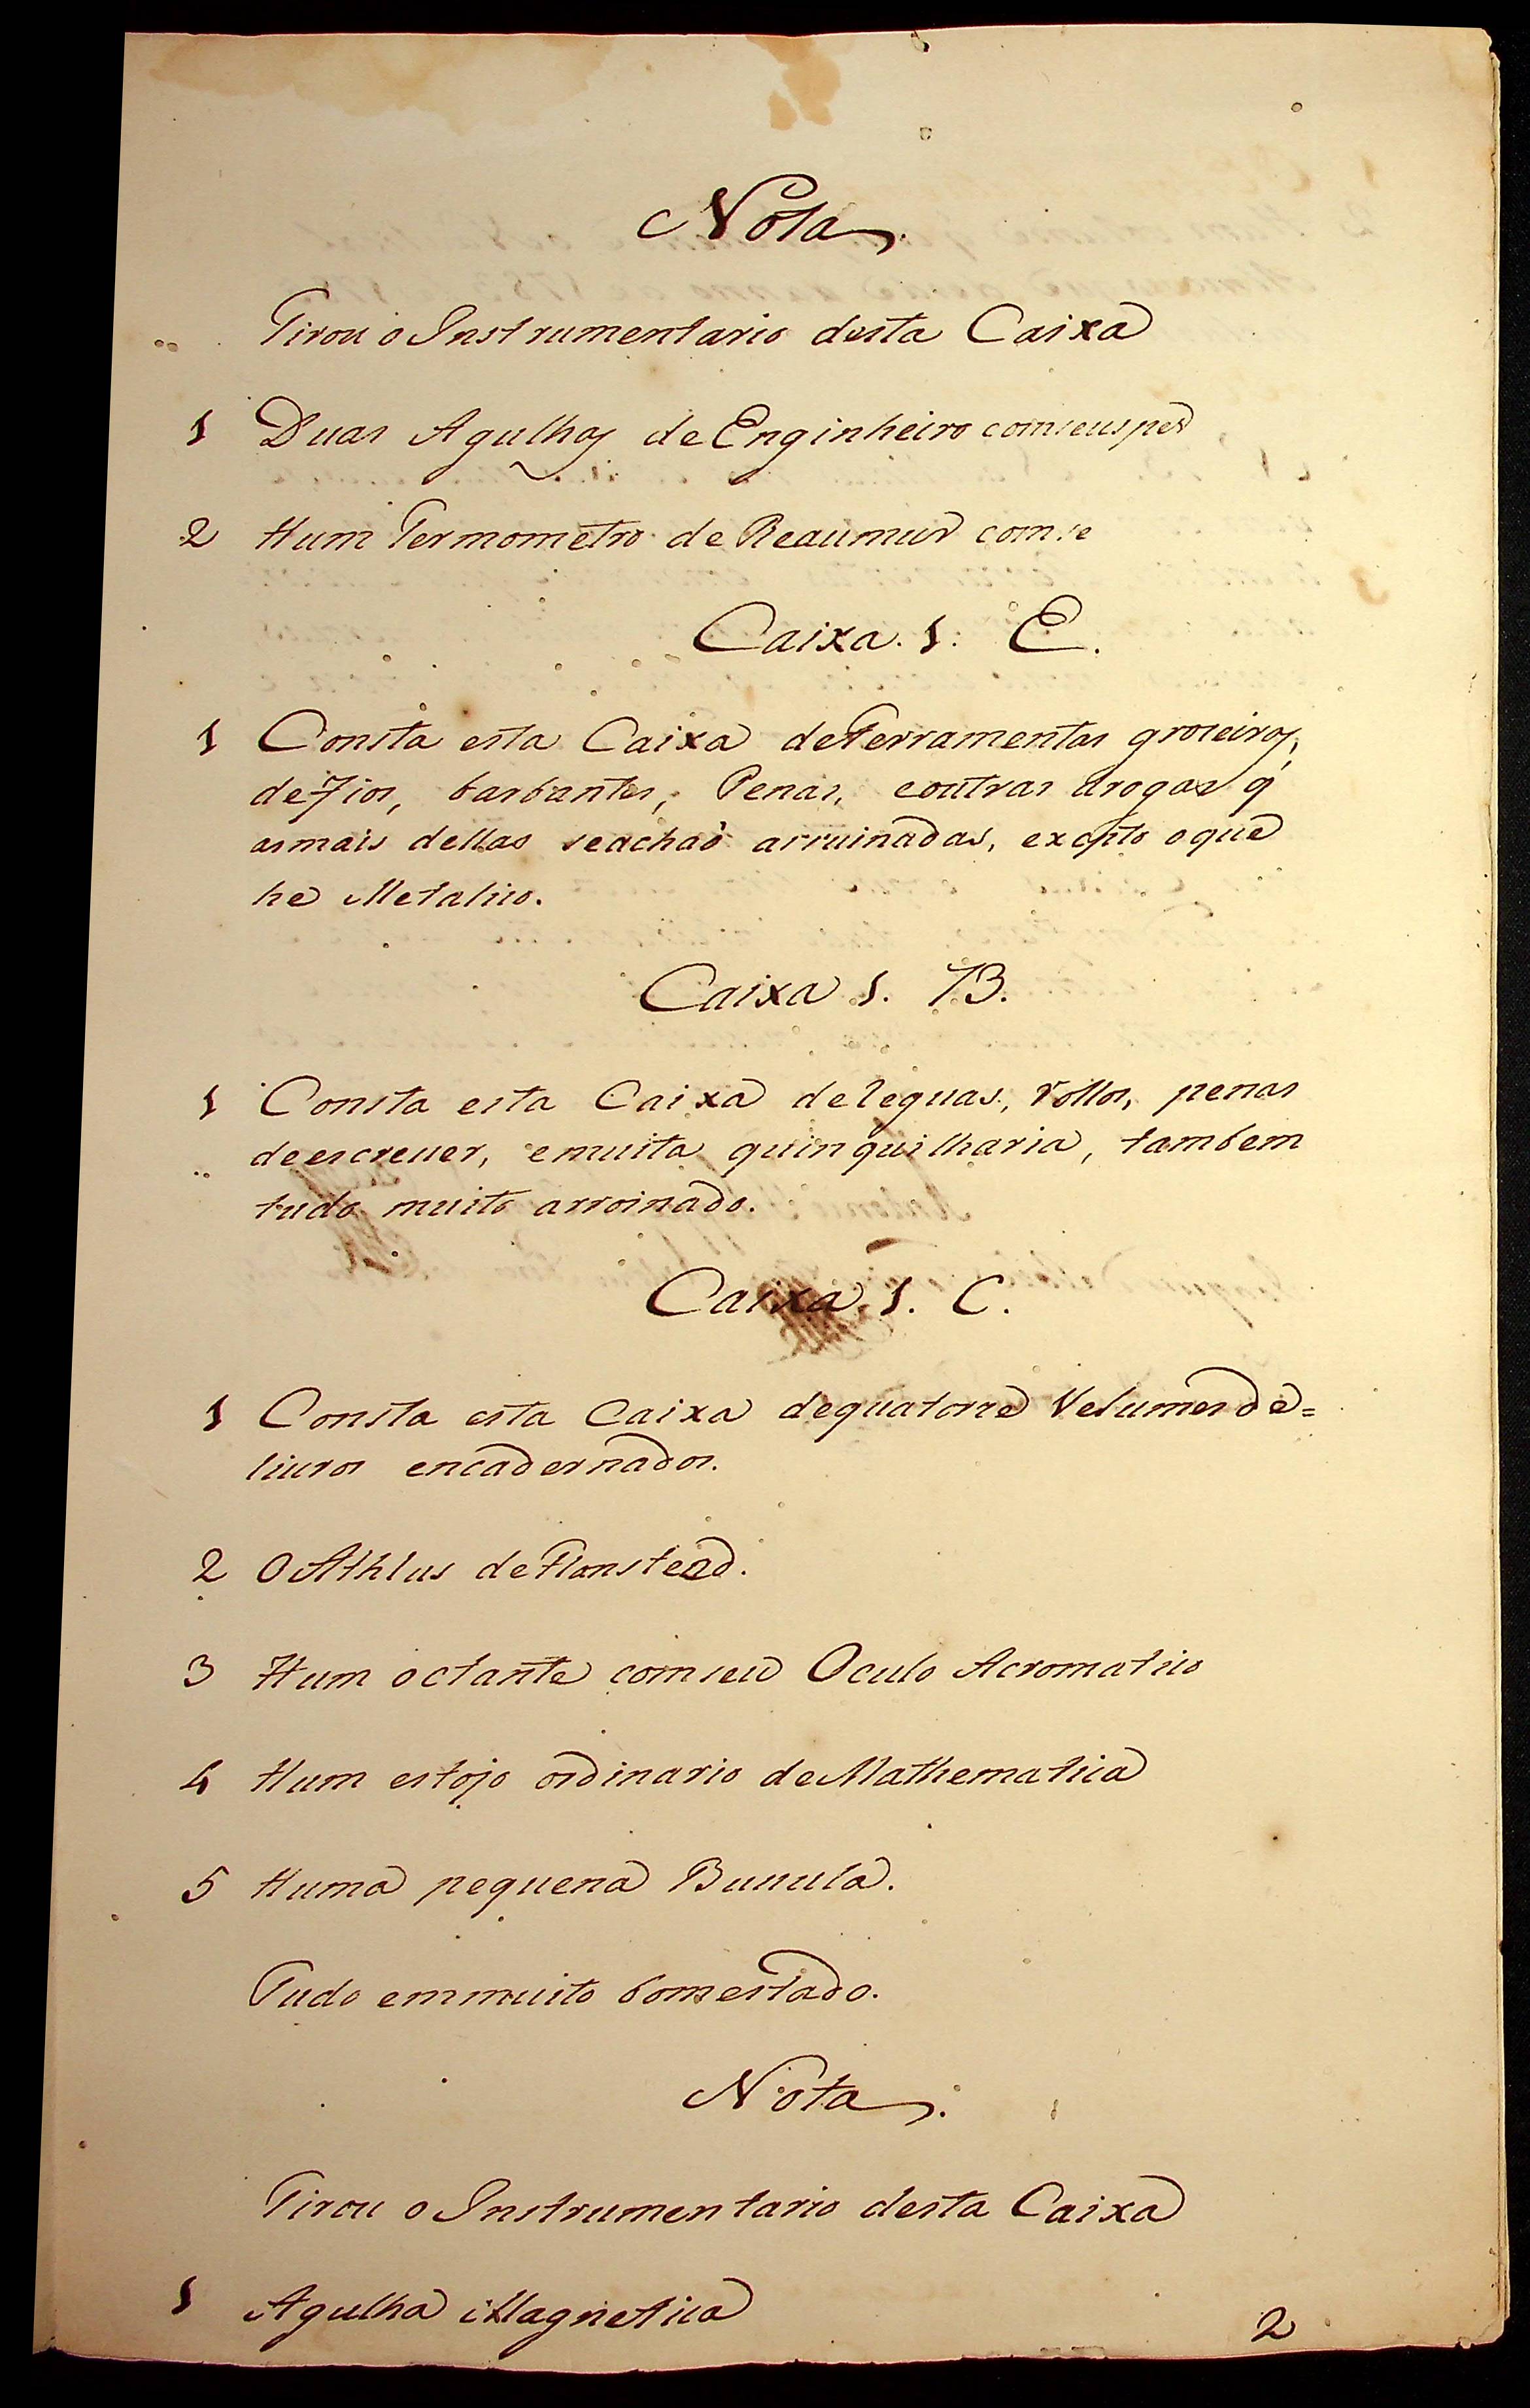 Nota.
Tirou o Instrumentario desta Caixa
1 Duas Agulhas de Enginheiro com seus pes
2 Hum Termometro de Reaumur com se
Caixa. 1. E.
1 Consta esta Caixa de Ferramentas groseiras,
de Fios, barbantes, Penas, e outras drogas q̃
as mais dellas se achaõ arruinadas, excepto o que
he Metalico.
Caixa 1. B.
1 Consta esta Caixa de leguas, rollos, penas
de escreuer, e muita quinquilharia, tambem
tudo muito arroinado.
Caixa 1. C.
1 Consta esta Caixa de quatorze Velumes de=
liuros encadernados.
2 O Athlus de Flansteed.
3 Hum octante com seu Oculo Acromatico
4 Hum estojo ordinario de Mathematica
5 Huma pequena Bussula.
Tudo em muito bom estado.
Nota.
Tirou o Instrumentario desta Caixa
1 Agulha Magnetica
2